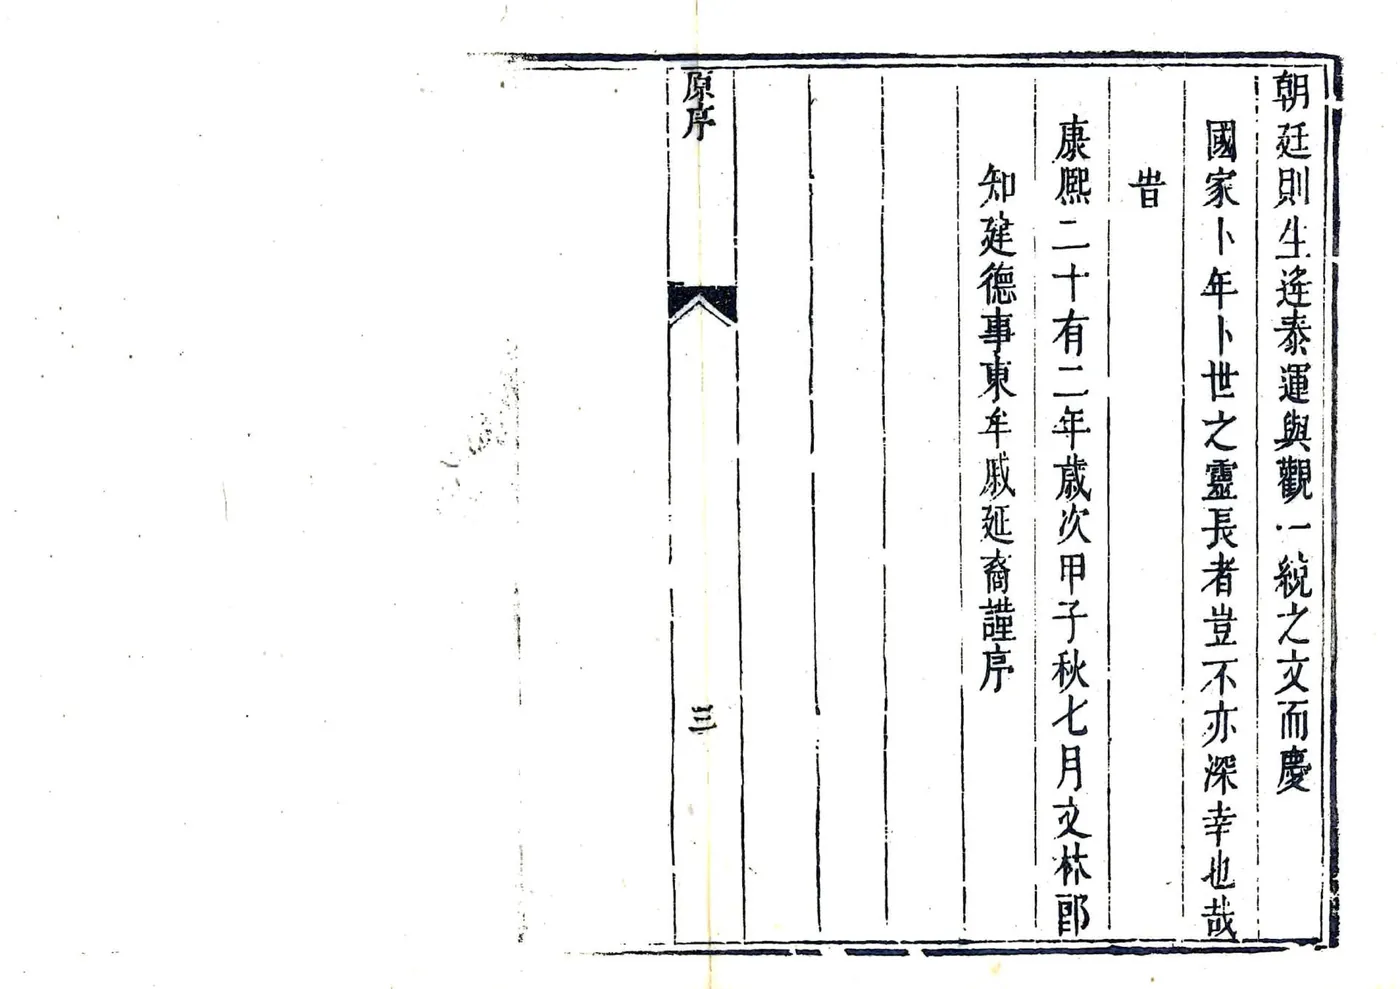 朝廷則生逢泰運與觀一統之文而慶
國家卜年卜世之靈長者豈不亦深幸也哉
旹
康熈二十有二年歲次甲子秋七月文林郎
知建德事東牟戚延裔謹序
原序
三